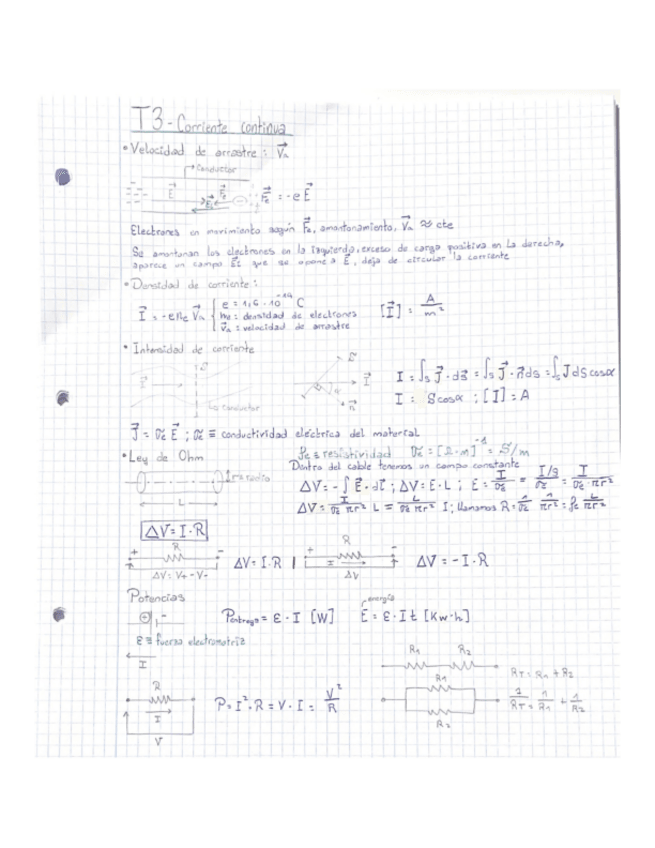 T3 - Corriente continua
• Velocidad de arrastre: V⃗a
Conductor
E⃗ F⃗e
F⃗e = -e E⃗
Electrones en movimiento según F⃗e, amontonamiento, V⃗a ≈ cte
Se amontonan los electrones en la izquierda, exceso de carga positiva en la derecha,
aparece un campo E⃗i que se opone a E⃗, deja de circular la corriente
• Densidad de corriente:
J⃗ = -e ne V⃗a { e = 1,6 · 10⁻¹⁹ C
ne: densidad de electrones
v⃗a: velocidad de arrastre
[J⃗] = A/m²
• Intensidad de corriente
E⃗
La conductor
S⃗
α J⃗
n⃗
I = ∫s J⃗ · ds⃗ = ∫s J⃗ · n⃗ ds = ∫s J ds cosα
I = S cosα ; [I] = A
J⃗ = σe E⃗ ; σe ≡ conductividad eléctrica del material
• Ley de Ohm
ρe ≡ resistividad σe = [Ω·m]⁻¹ = S/m
Dentro del cable tenemos un campo constante
r ≡ radio
L
ΔV = -∫ E⃗ · dl⃗ ; ΔV = E · L ; E = J/σe = I/S/σe = I/σe · πr²
ΔV = I/σe πr² L = L/σe πr² I ; llamamos R = 1/σe L/πr² = ρe L/πr²
ΔV = I · R
+ R -
ΔV = V+ - V-
ΔV = I · R |
+ R -
I
ΔV
ΔV = -I · R
Potencias
+ -
ε ≡ fuerza electromotriz
I
Pentrega = ε · I [W]
energía
E = ε · I t [Kw·h]
R
I
V
P = I² · R = V · I = V²/R
R1 R2
RT = R1 + R2
R1
R2
1/RT = 1/R1 + 1/R2